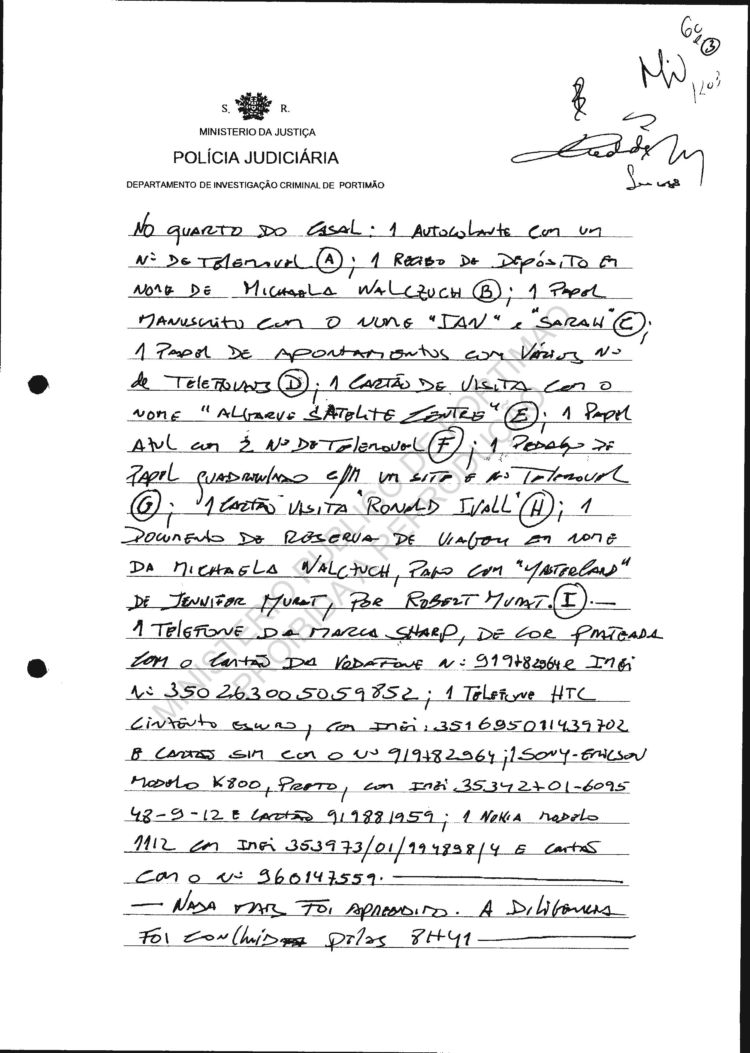 S. R.
MINISTERIO DA JUSTIÇA
POLÍCIA JUDICIÁRIA
DEPARTAMENTO DE INVESTIGAÇÃO CRIMINAL DE PORTIMÃO
3
1203
NO QUARTO DO CASAL: 1 AUTOCOLANTE COM UM
Nº DE TELEMOVEL (A); 1 RECIBO DE DEPÓSITO EM
NOME DE MICHAELA WALCZUCH (B); 1 PAPEL
MANUSCRITO COM O NOME "IAN" e "SARAH" (C);
1 PAPEL DE APONTAMENTOS COM VÁRIOS Nº
de TELEFONES (D); 1 CARTÃO DE VISITA COM O
NOME "ALGARVE SATELITE CENTRE" (E); 1 PAPEL
AZUL COM 2 Nº DE TELEMOVEL (F); 1 PEDAÇO DE
PAPEL QUADRICULADO C/ UM SITE E Nº TELEMOVEL
(G); 1 CARTÃO VISITA "RONALD IVALL" (H); 1
DOCUMENTO DE RESERVA DE VIAGEM EM NOME
DA MICHAELA WALCZUCH, PAGO COM "MASTERCARD"
DE JENNIFER MURAT, POR ROBERT MURAT. (I) —
1 TELEFONE DA MARCA SHARP, DE COR PRATEADA
COM O CARTÃO DA VODAFONE Nº: 919782964 e IMEI
Nº: 350263005059852; 1 TELEFONE HTC
CINZENTO ESCURO, COM IMEI: 351695011439702
E CARTÃO SIM COM O Nº 919782964; 1 SONY-ERICSON
MODELO K800, PRETO, COM IMEI 35342701-6095
48-9-12 E CARTÃO 919881959; 1 NOKIA MODELO
1112 COM IMEI 353973/01/994898/4 E CARTÃO
COM O Nº 960147559. —
— NADA MAIS FOI APREENDIDO. A DILIGENCIA
FOI CONCLUIDA pelas 8H41 —
MINISTÉRIO PÚBLICO DE PORTIMÃO
PROIBIDA A REPRODUÇÃO